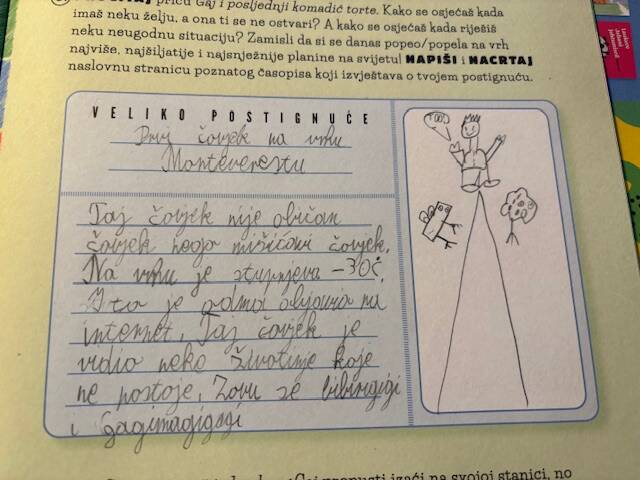 priču Gaj i posljednji komadić torte. Kako se osjećaš kada
imaš neku želju, a ona ti se ne ostvari? A kako se osjećaš kada riješiš
neku neugodnu situaciju? Zamisli da si se danas popeo/popela na vrh
najviše, najšiljatije i najsnježnije planine na svijetu! NAPIŠI i NACRTAJ
naslovnu stranicu poznatog časopisa koji izvještava o tvojem postignuću.
VELIKO POSTIGNUĆE
Prvi čovjek na vrhu
Monteverestu
Taj čovjek nije običan
čovjek nego mišićavi čovjek.
Na vrhu je stupnjeva -30C.
I to je odma objavio na
internet. Taj čovjek je
vidio neke životinje koje
ne postoje. Zovu se bibingigi
i gagimagigagi
Gaj propusti izaći na svojoj stanici, no